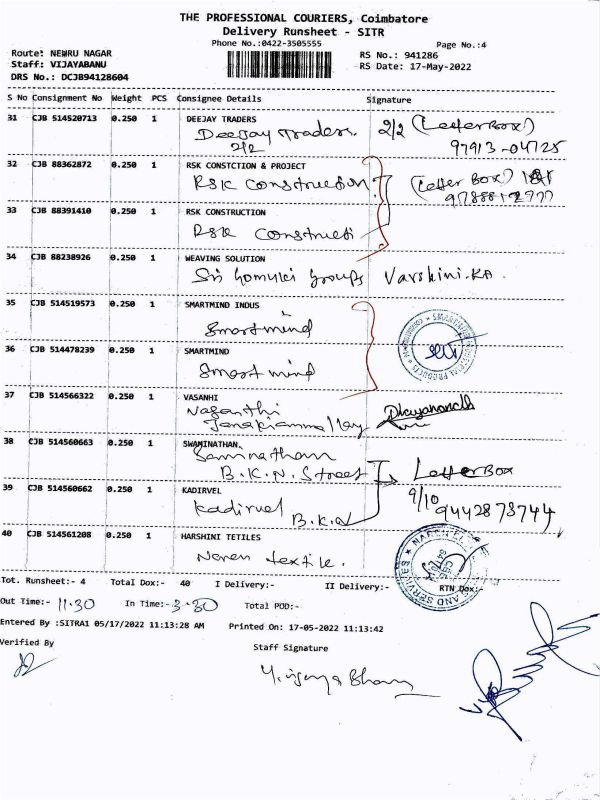 THE PROFESSIONAL COURIERS, Coimbatore
Delivery Runsheet - SITR
Phone No.:0422-3505555
Page No.:4
Route: NEWRU NAGAR
RS No.: 941286
Staff: VIJAYABANU
RS Date: 17-May-2022
DRS No.: DCJB94128604
S No Consignment No Weight PCS Consignee Details Signature
31 CJB 514520713 0.250 1 DEEJAY TRADERS
Deejay Traders. 2/2 (Letter Box)
2/2 97913-04725
32 CJB 88362872 0.250 1 RSK CONSTCTION & PROJECT
RSK Construction (Letter Box)
33 CJB 88391410 0.250 1 RSK CONSTRUCTION
RSK Constructi
34 CJB 88238926 0.250 1 WEAVING SOLUTION
Sri Gomuki Groups Varshini.KA.
35 CJB 514519573 0.250 1 SMARTMIND INDUS
Smartmind
36 CJB 514478239 0.250 1 SMARTMIND
Smart mind
37 CJB 514566322 0.250 1 VASANHI
Janakiammallay
38 CJB 514560663 0.250 1 SWAMINATHAN.
Saminatham
B.K.N. Street Letter Box
39 CJB 514560662 0.250 1 KADIRVEL
9/10
Kadirvel 9442873744
B.K.N
40 CJB 514561208 0.250 1 HARSHINI TETILES
Naren textile.
Tot. Runsheet:- 4 Total Dox:- 40 I Delivery:- II Delivery:- RTN Dox:-
Out Time:- 11.30 In Time:- 3-30 Total POD:-
Entered By :SITRA1 05/17/2022 11:13:28 AM Printed On: 17-05-2022 11:13:42
Verified By Staff Signature